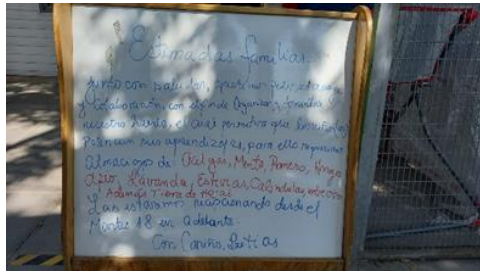 Estimadas familias:
Junto con saludar,
y colaboración, con el fin de Organizar y
nuestro huerto, el cual permitirá que los niños/as
potencien sus aprendizajes, para ello requerimos
almacigos de Acelgas, Menta, Romero, Hinojo
Lavanda, Estevias, Caléndulas, entre otros
Además Tierra de Hojas
Las estaremos recepcionando desde el
Martes 18 en adelante.
Con Cariño, las tías